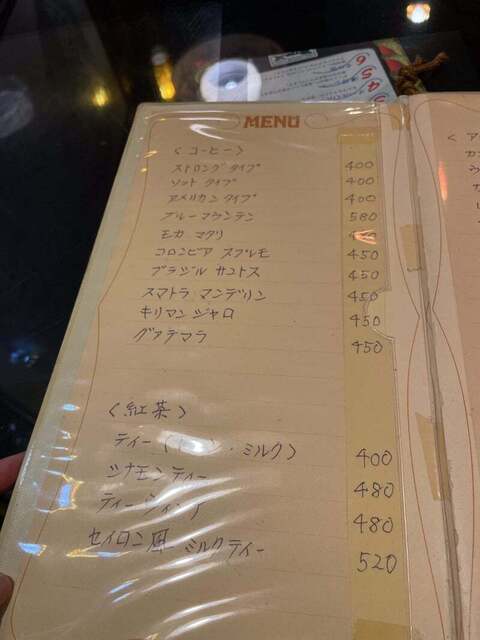 MENU
〈コーヒー〉
ストロングタイプ 400
ソフトタイプ 400
アメリカンタイプ 400
ブルーマウンテン 580
モカ マタリ
コロンビア スプレモ 450
ブラジル サントス 450
スマトラ マンデリン 450
キリマンジャロ 450
グァテマラ 450
〈紅茶〉
ティー( ・ミルク) 400
シナモンティー 480
ティー 480
セイロン風 ミルクティー 520